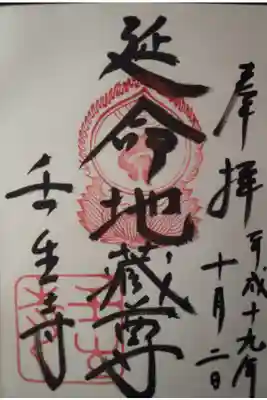 奉拝
平成十九年
十月二日
延命地蔵尊
壬生寺